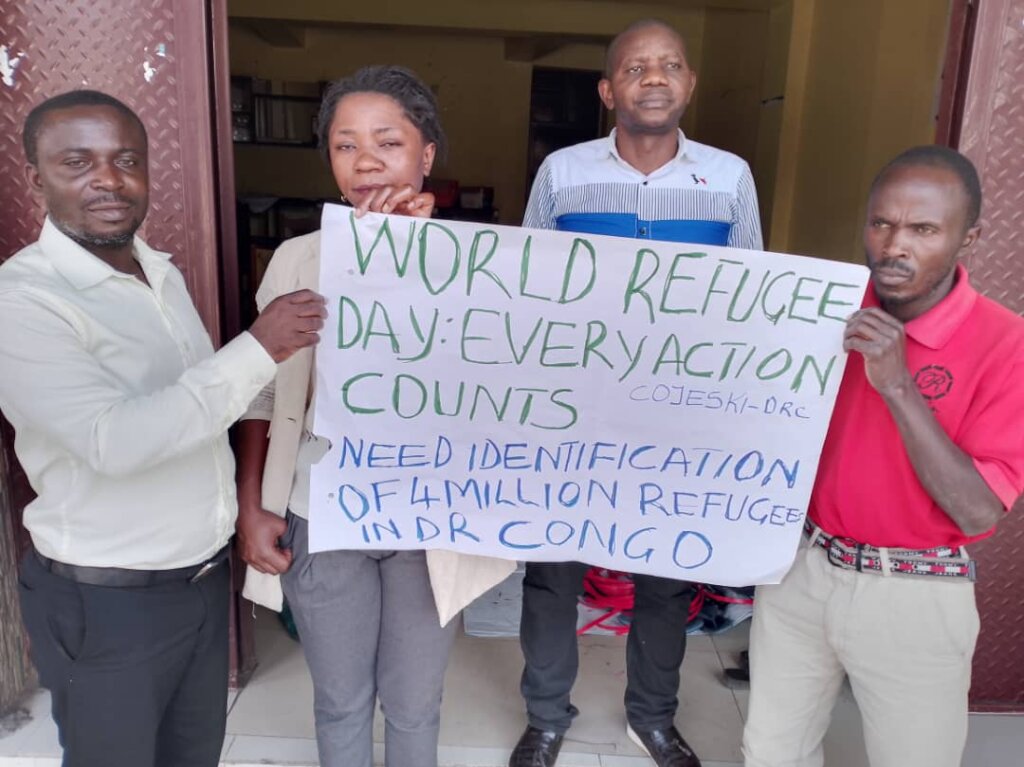 WORLD REFUGEE
DAY: EVERY ACTION
COUNTS
COJESKI-DRC
NEED IDENTIFICATION
OF 4 MILLION REFUGEES
IN DR CONGO
R